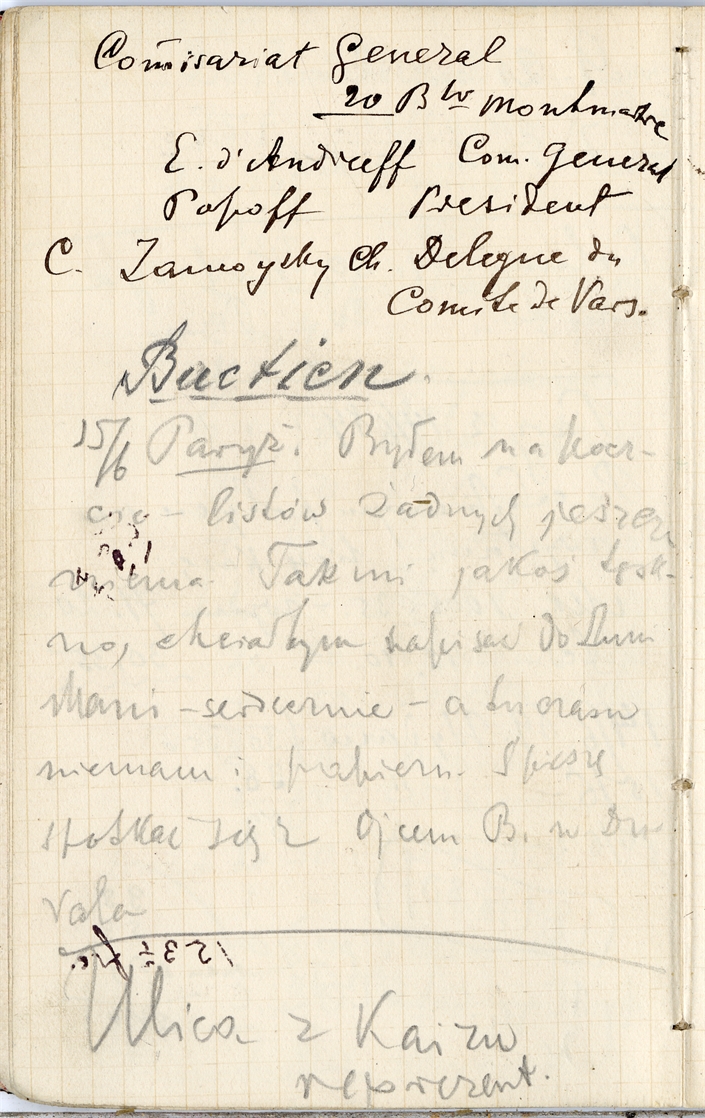 Comisariat General
20 Blv Montmartre
E. d'Andreeff Com. General
Popoff President
C. Zamoysky Ch. Delegue du
Comite de Vars.
15/6 Paryż. Byłem na pocz-
cie – listów żadnych jeszcze
niema. Tak mi jakoś tęsk-
no, chciałbym napisać do
Mani – serdecznie – a tu czasu
niemam i papieru. Spieszę
spotkać się z Ojcem B. u Du
vala
153 fr.
Ulica z Kairu
reprezent.